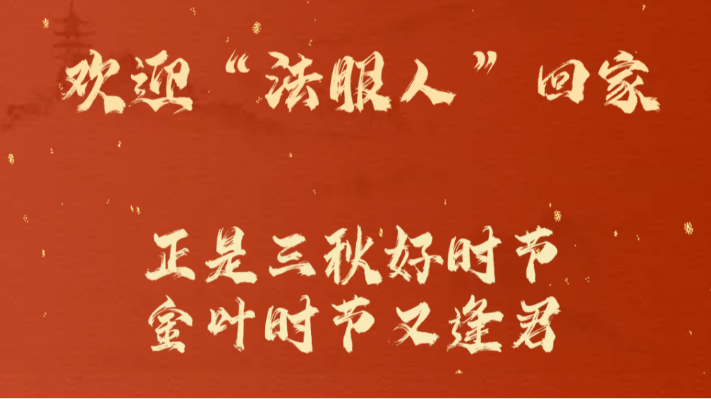 欢迎“法服人”回家
正是三秋好时节
金叶时节又逢君